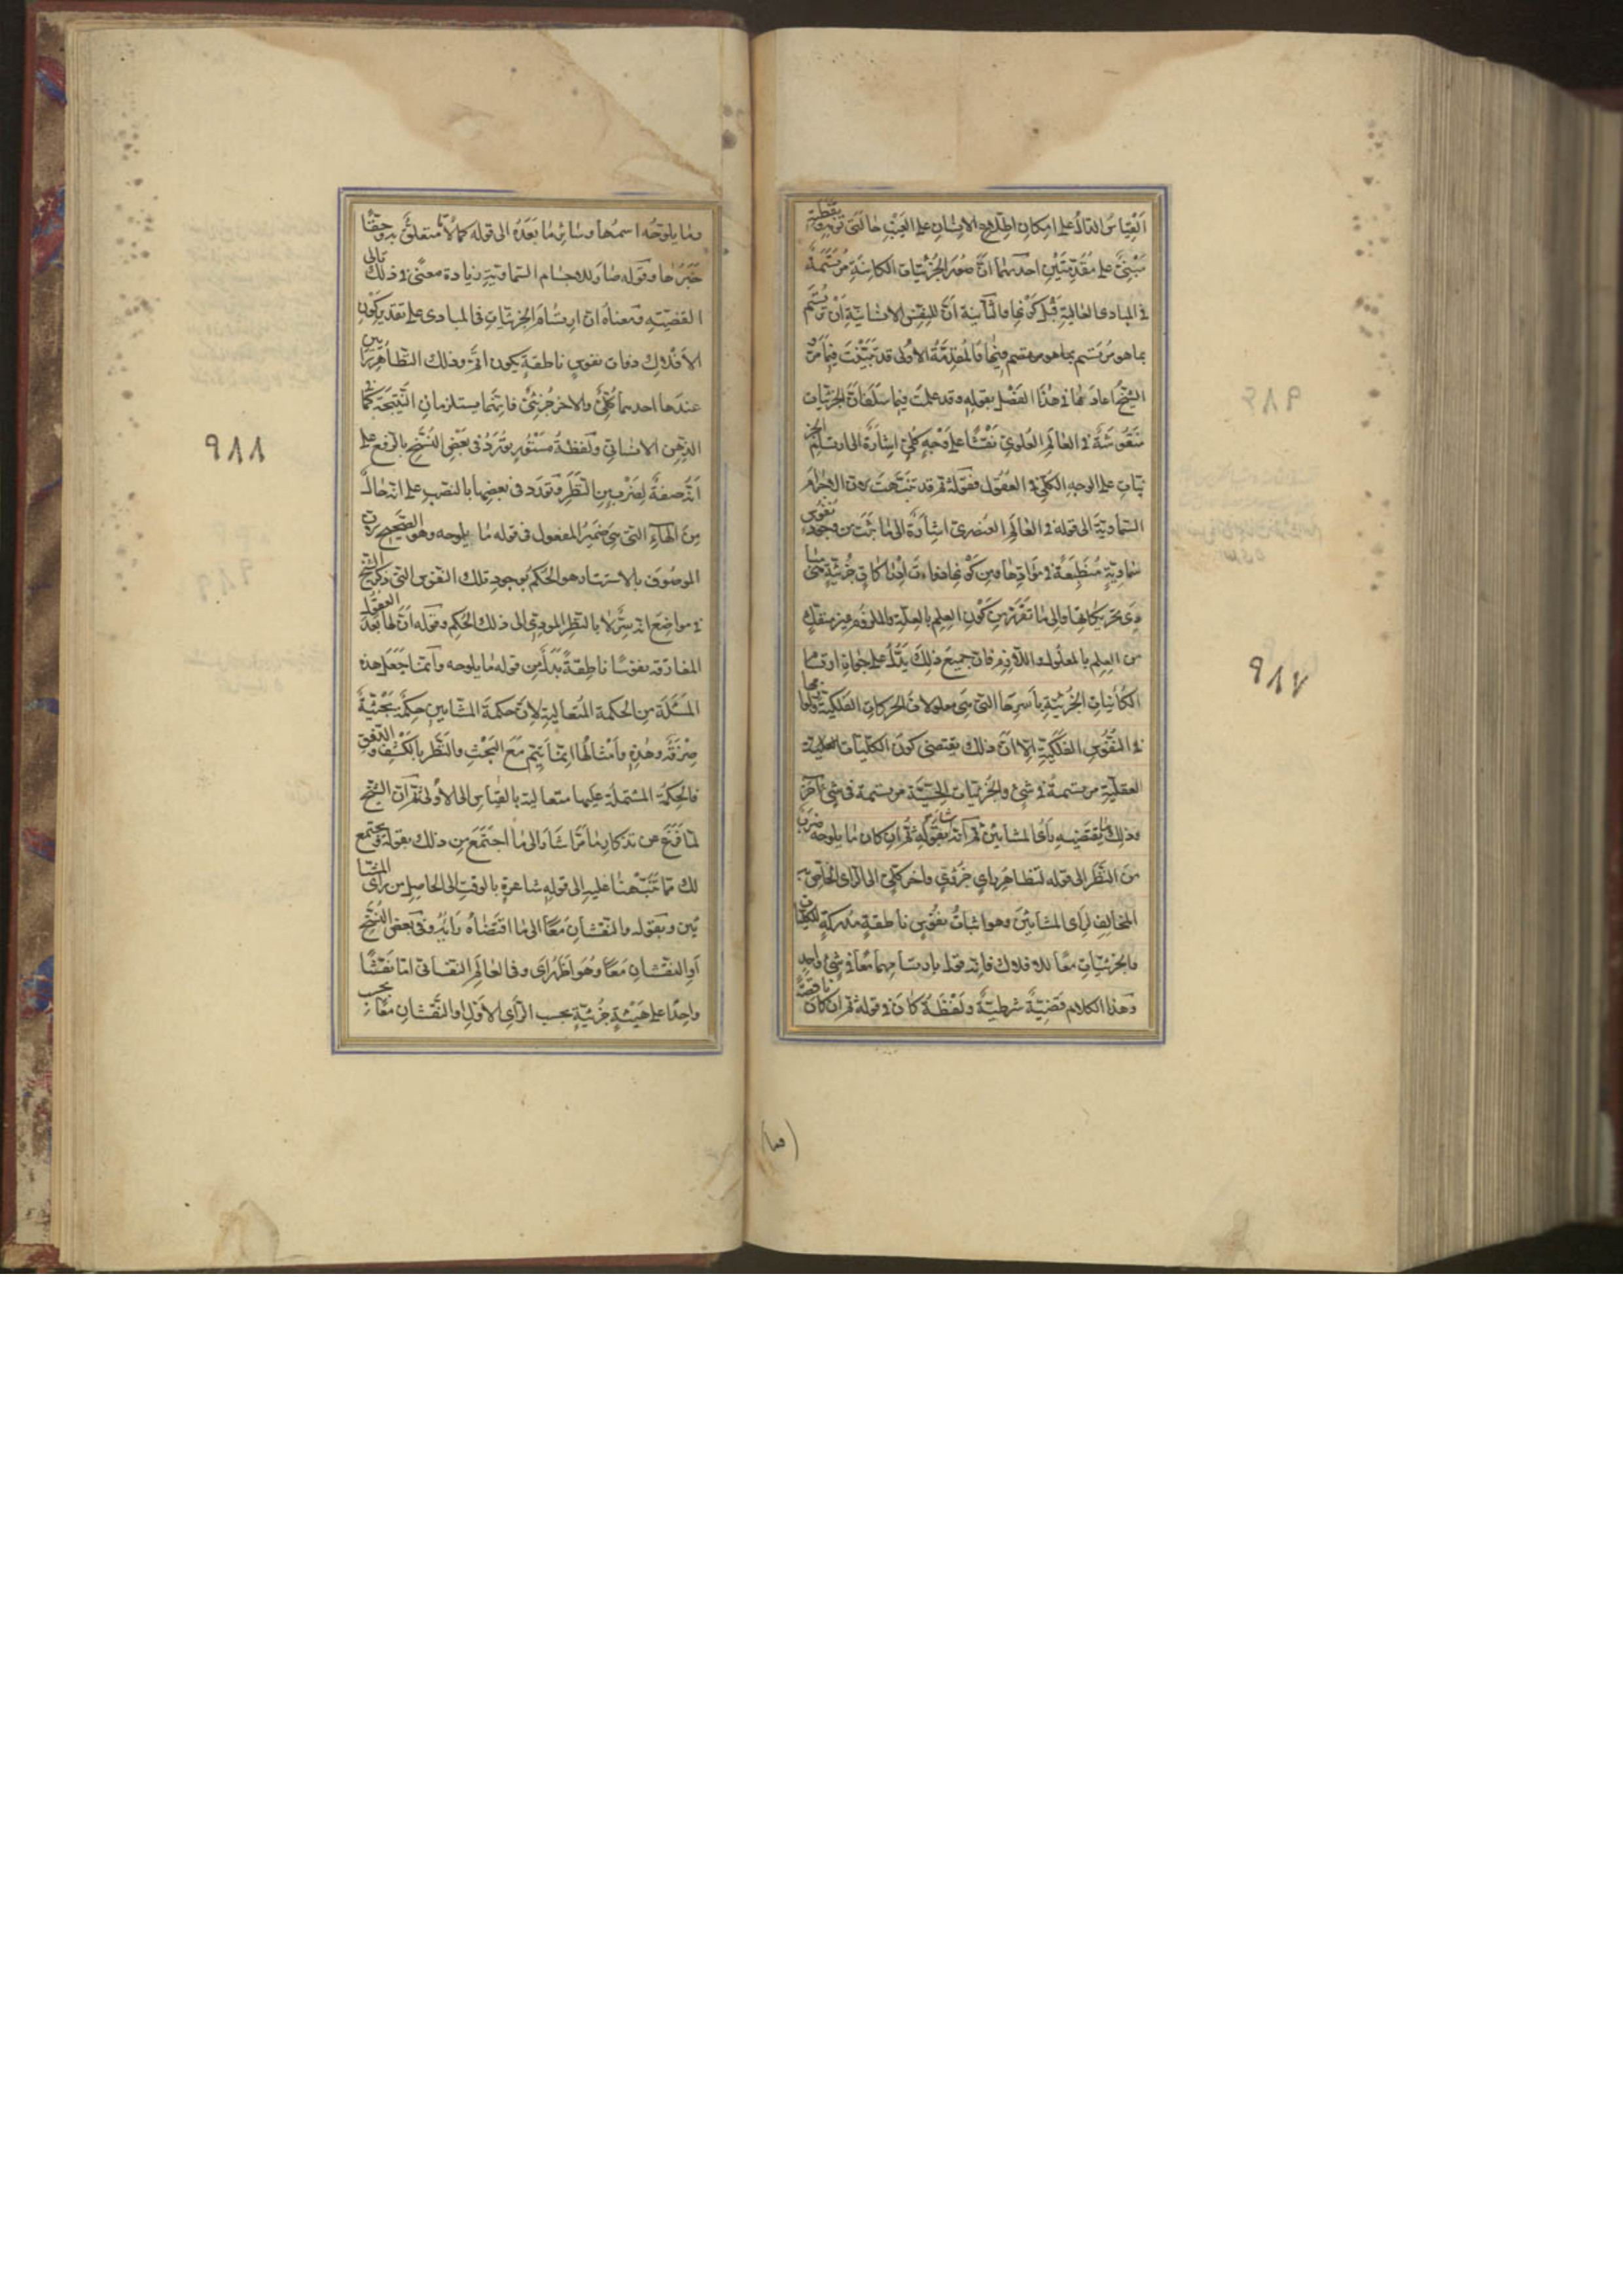 القياس الدال على امكان اطلاع الانسان على الغيب حالتى نومه ويقظته
مبنىّ على مقدمتين احديهما ان صور الجزئيات الكائنة مرتسمة
فى المبادى العالية قبل كونها والثانية ان للنفس الانسانية ان ترتسم
بما هو مرتسم فيها والمقدمة الاولى قد تبينت فيما مرّ و
الشيخ اعادها فى هذا الفصل بقوله وقد علمت فيما سلف ان الجزئيات
منقوشة فى العالم العلوى نقشًا على وجه كلىّ اشارة الى ارتسام الجز
ئيات على الوجه الكلى فى العقول فقوله ثم قد تنبهت لان الاجرام
السماوية الى قوله فى العالم العنصرى اشارة الى ما ثبت من وجود نفوس
سماوية منطبعة فى موادها ومن كونها ذوات ادراكات جزئية هى مبا
دى تحريكاتها والى ما تقرر من كون العلم بالعلة والملزوم غير منفك
من العلم بالمعلول واللازم فان جميع ذلك يدل على جواز ارتسام
الكائنات الجزئية باسرها التى هى معلولات الحركات الفلكية ولوازمها
فى النفوس الفلكية الا ان ذلك يقتضى كون الكليات
العقلية مرتسمة فى شئ والجزئيات الحسية مرتسمة فى شئ آخر
وذلك ما يقتضيه رأى المشايين ثم انه اشار بقوله ثم ان كان ما يلوحه ضرب
من النظر الى قوله لتظاهر رأى جزئى وآخر كلى الى الرأى الخاص به
المخالف لرأى المشايين وهو اثبات نفوس ناطقة مدركة للكليات
والجزئيات معًا للافلاك فانه قول بارتسامهما معًا فى شئ واحد
وهذا الكلام قضية شرطية ولفظة كان فى قوله ثم ان كان ناقصة
٩٨٧
وما يلوحه اسمها وسائر ما بعده الى قوله كمالا ما متعلق به وحقًا
خبرها وقوله صار للاجسام السماوية زيادة معنى فى ذلك تالى
القضية ومعناه ان ارتسام الجزئيات فى المبادى على تقدير كون
الافلاك ذوات نفوس ناطقة يكون اتم وذلك لتظاهر رأيين
عندها احدهما كلى والاخر جزئى فانهما يستلزمان النتيجة كما فى
الذهن الانسانى ولفظة مستور تورد فى بعض النسخ بالرفع على
انه صفة لضرب من النظر وتورد فى بعضها بالنصب على انه حال
من الهاء التى هى ضمير المفعول فى قوله ما يلوحه وهو الصحيح لان
الموصوف بالاستتار هو الحكم بوجود تلك النفوس التى ذكر الشيخ
فى مواضع انه سر لا بالنظر المودى الى ذلك الحكم وقوله ان لها بعد العقول
المفارقة نفوسًا ناطقة بدل من قوله ما يلوحه وانما جعل هذه
المسئلة من الحكمة المتعالية لان حكمة المشايين حكمة بحثية
صرفة وهذه وامثالها انما يتم مع البحث والنظر بالكشف والذوق
فالحكمة المشتملة عليها متعالية بالقياس الى الاولى ثم ان الشيخ
لما فرغ عن تذكار ما مرّ اشار الى ما اجتمع من ذلك بقوله ويجتمع
لك مما نبهنا عليه الى قوله شاعرة بالوقت الى الحاصل من رأى المشا
يين وبقوله والنقشان معًا الى ما اقتضاه رأيه وفى بعض النسخ
او النقشان معًا وهو اظهر اى وفى العالم النفسانى اما نقشًا
واحدًا على هيئة جزئية بحسب الرأى الاول او النقشان معًا بحسب
٩٨٨